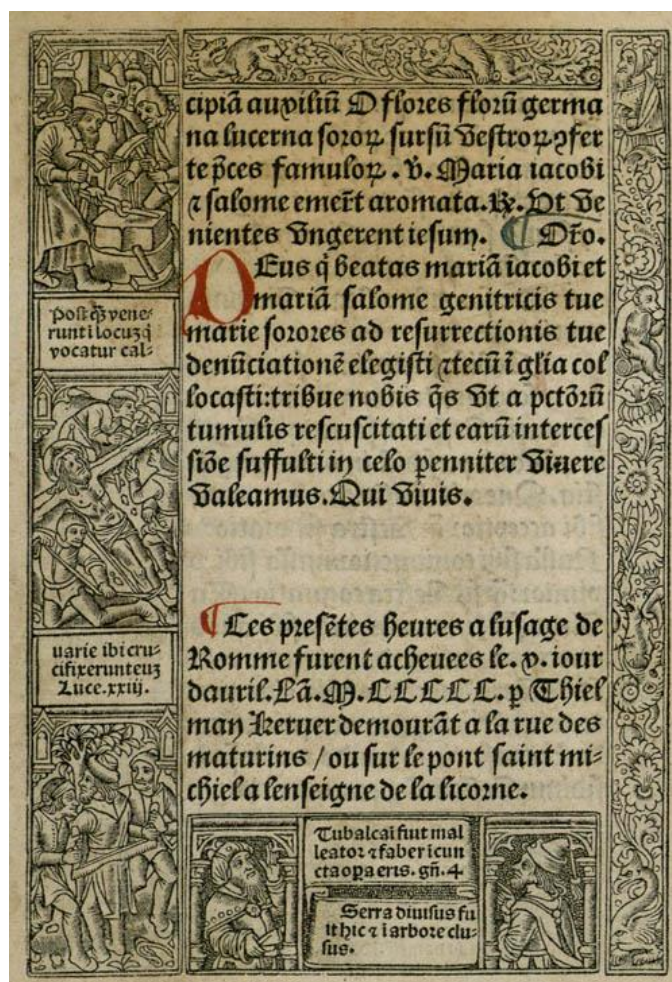 cipiā auxiliū O flores florū germa
na lucerna soroꝝ sursū vestroꝝ ꝓfer
te p̄ces famuloꝝ. ℣. Maria iacobi
⁊ salome emer̄t aromata. ℟. Vt ve
nientes vngerent iesum. ¶ Or̄o.
DEus q̄ beatas mariā iacobi et
mariā salome genitricis tue
marie sorores ad resurrectionis tue
denūciationē elegisti ⁊ tecū ī gl̄ia col
locasti: tribue nobis q̄s vt a pctōrū
tumulis rescuscitati et earū interces
siōe suffulti in celo ꝑenniter viuere
valeamus. Qui viuis.
¶ Ces presētes heures a lusage de
Romme furent acheuees le. x. iour
dauril. Lā. M. CCCCC. p Thiel
man Keruer demourāt a la rue des
maturins / ou sur le pont saint mi-
chiel a lenseigne de la licorne.
Post q̄ꝫ vene-
runt ī locuꝫ q̄
vocatur cal-
uarie ibi cru-
cifixerunt euꝫ
Luce. xxiij.
Tubalcaī fuit mal
leator ⁊ faber ī cun
cta oꝑa eris. gn̄. 4.
Serra diuisus fu
it hic ⁊ ī arbore clu-
sus.